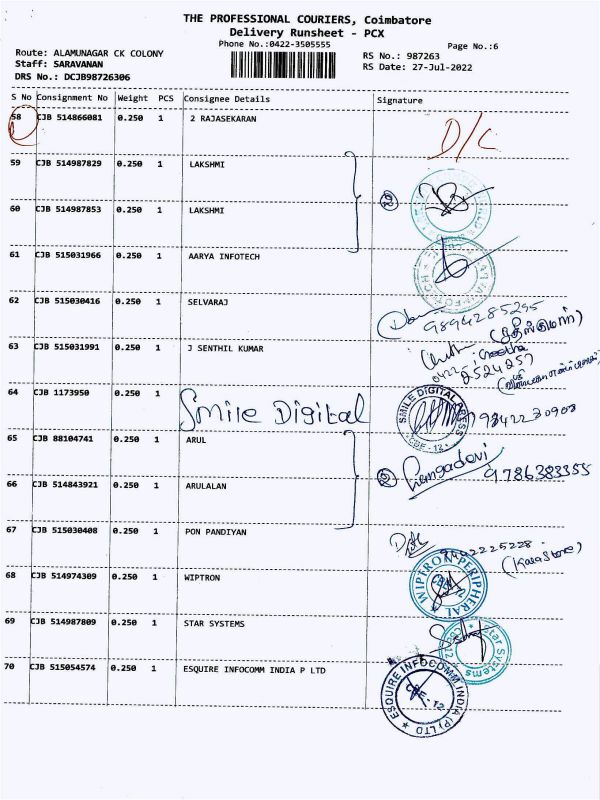 THE PROFESSIONAL COURIERS, Coimbatore
Delivery Runsheet - PCX
Phone No.:0422-3505555
Page No.:6
Route: ALAMUNAGAR CK COLONY
Staff: SARAVANAN
DRS No.: DCJB98726306
RS No.: 987263
RS Date: 27-Jul-2022
S No Consignment No Weight PCS Consignee Details Signature
58 CJB 514866081 0.250 1 2 RAJASEKARAN D/C
59 CJB 514987829 0.250 1 LAKSHMI
60 CJB 514987853 0.250 1 LAKSHMI
61 CJB 515031966 0.250 1 AARYA INFOTECH
62 CJB 515030416 0.250 1 SELVARAJ
9894285295
63 CJB 515031991 0.250 1 J SENTHIL KUMAR
Geetha
0422 2524257
64 CJB 1173950 0.250 1 Smile Digital
SMILE DIGITAL PRESS CBE-12
9842230908
65 CJB 88104741 0.250 1 ARUL
9786383355
66 CJB 514843921 0.250 1 ARULALAN
67 CJB 515030408 0.250 1 PON PANDIYAN
9442225228
68 CJB 514974309 0.250 1 WIPTRON
WIPTRON-PERIPHERAL
69 CJB 514987809 0.250 1 STAR SYSTEMS
Star Systems
70 CJB 515054574 0.250 1 ESQUIRE INFOCOMM INDIA P LTD
ESQUIRE INFOCOMM INDIA (P) LTD CBE-12